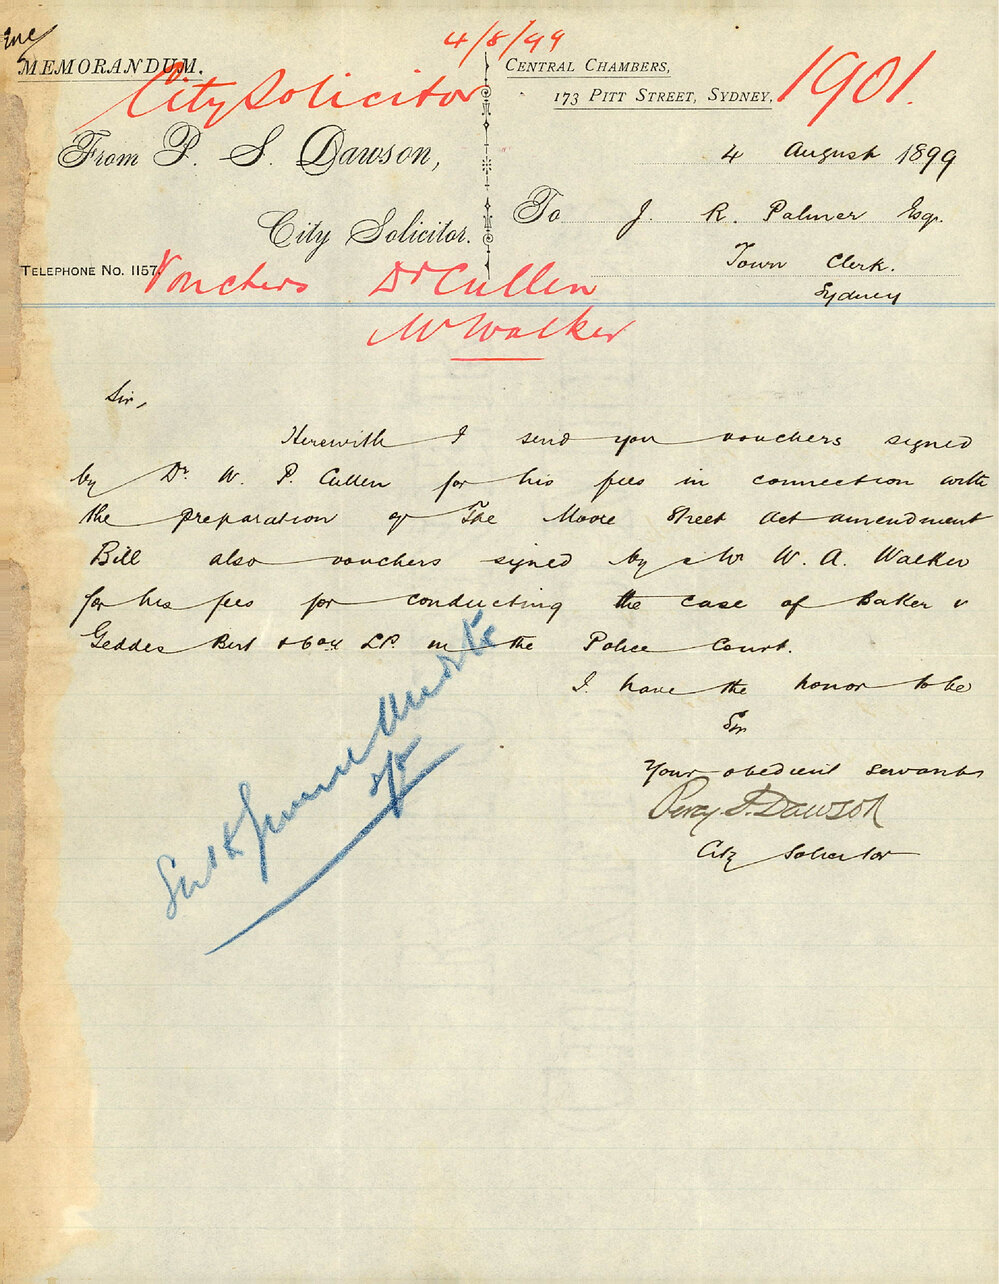 4/8/99
MEMORANDUM.
City Solicitor
CENTRAL CHAMBERS,
173 PITT STREET, SYDNEY,
1901.
From P. S. Dawson,
City Solicitor.
TELEPHONE NO. 1157.
4 August 1899
To J. R. Palmer Esq.
Town Clerk.
Sydney
Vouchers Dr Cullen
Mr Walker
Sir,
Herewith I send you vouchers signed
by Dr. W. P. Cullen for his fees in connection with
the preparation of The Moore Street Act amendment
Bill also vouchers signed by Mr W. A. Walker
for his fees for conducting the case of Baker v
Geddes Birt & Coy Ld. in the Police Court.
I have the honor to be
Sir
Your obedient servant
Percy S. Dawson
City Solicitor